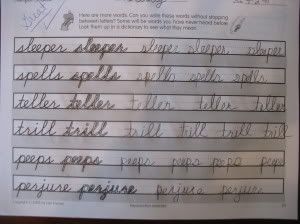 Great
Here are more words. Can you write these words without stopping
between letters? Some will be words you have never heard before.
Look them up in a dictionary to see what they mean.
sleeper sleeper sleeper sleeper sleeper
spells spells spells spells spells
teller teller teller teller teller
trill trill trill trill trill trill
peeps peeps peeps peeps peeps peeps
perjure perjure perjure perjure